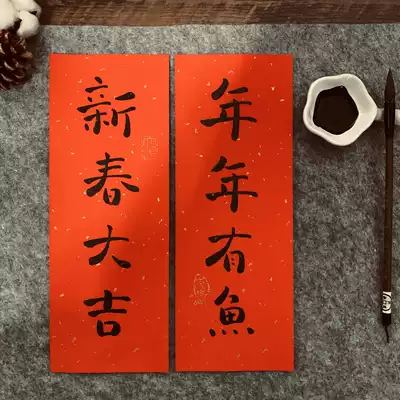 年年有魚
新春大吉